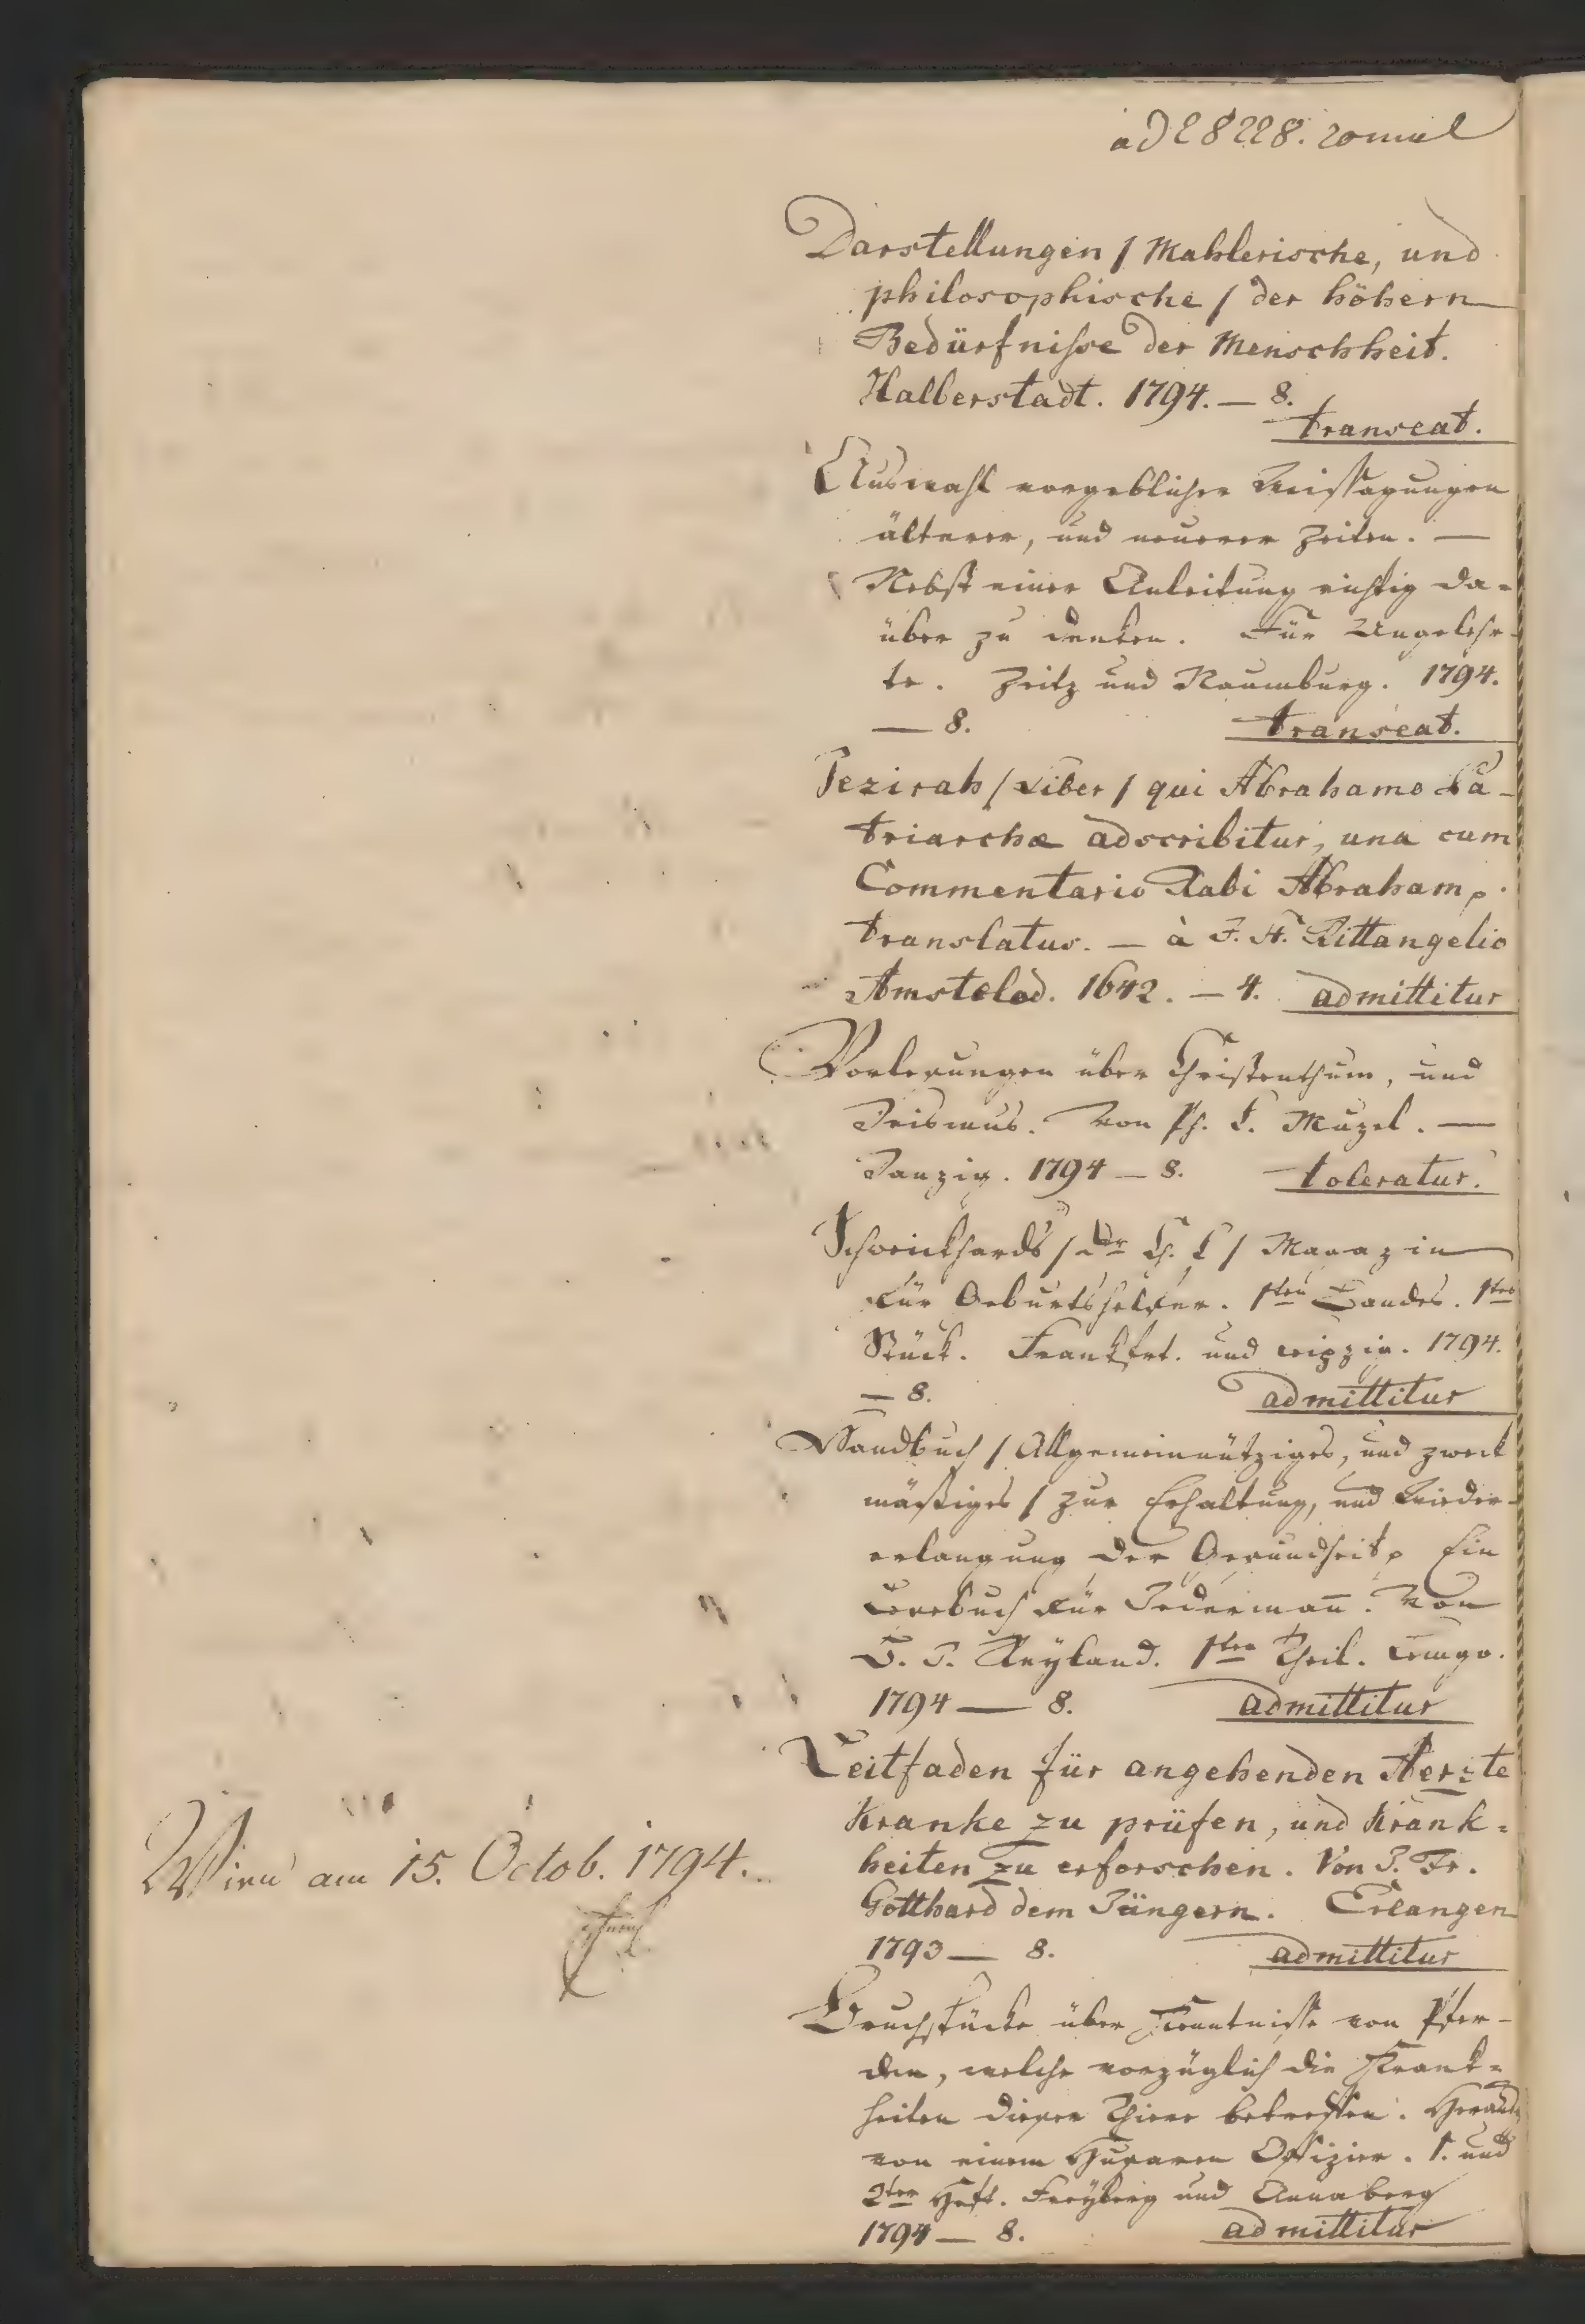 ad 28228.
Darstellungen / Mahlerische, und
philosophische / der höhern
Bedürfnisse der Menschheit.
Halberstadt. 1794. — 8.
transeat.
Auswahl vorgeblicher Weissagungen
älterer, und neuerer Zeiten. —
Nebst einer Anleitung richtig da=
über zu denken. Für Ungelehr-
te. Zeitz und Naumburg. 1794.
— 8. transeat.
Jezirah / Liber / qui Abrahamo Pa-
triarchæ adscribitur, una cum
Commentario Rabi Abraham
translatus. — à J. H. Rittangelio
Amstelod. 1642. — 4. admittitur
Vorlesungen über Christenthum, und
Deismus. Von Ph. L. Muzel. —
Danzig. 1794 — 8. toleratur.
Schweickhards / Dr Ch. L / Magazin
für Geburtshelfer. 1ten Bandes. 1tes
Stück. Frankfrt. und Leipzig. 1794.
— 8. admittitur
Handbuch / Allgemeinnütziges, und zweck
mässiges / zur Erhaltung, und Wieder-
erlangung der Gesundheit Ein
Lesebuch für Jederman̄. Von
Theil. Lemgo.
1794 — 8. admittitur
Leitfaden für angehenden Aerzte
Kranke zu prüfen, und Krank=
heiten zu erforschen. Von J. Fr.
Gotthard dem Jüngern. Erlangen
1793 — 8. admittitur
Wien am 15. Octob. 1794.
Bruchstücke über Kenntnisse von Pfer-
den, welche vorzüglich die Krank=
heiten dieser Thiere betreffen. Herausg
von einem Husaren Offizier. 1. und
2ter Heft. Freyberg und Annaberg
1794 — 8. admittitur